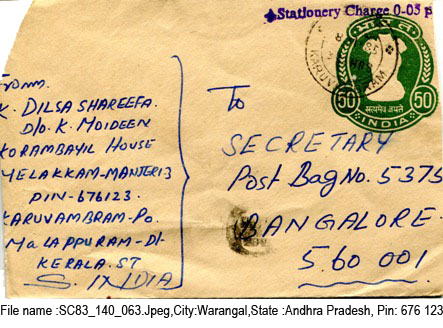 Stationery Charge 0-05 p
50
50
सत्यमेव जयते
INDIA
From
K. DILSA SHAREEFA.
D/o. K. MOIDEEN
KORAMBAYIL HOUSE
MELAKKAM-MANJERI-3
PIN-676123.
KARUVAMBRAM-Po.
MaLAPPURAM-Dt.
KERALA. ST
S. INDIA
To
SECRETARY
Post Bag No. 5375
BANGALORE.
560 001
File name :SC83_140_063.Jpeg,City:Warangal,State :Andhra Pradesh, Pin: 676 123